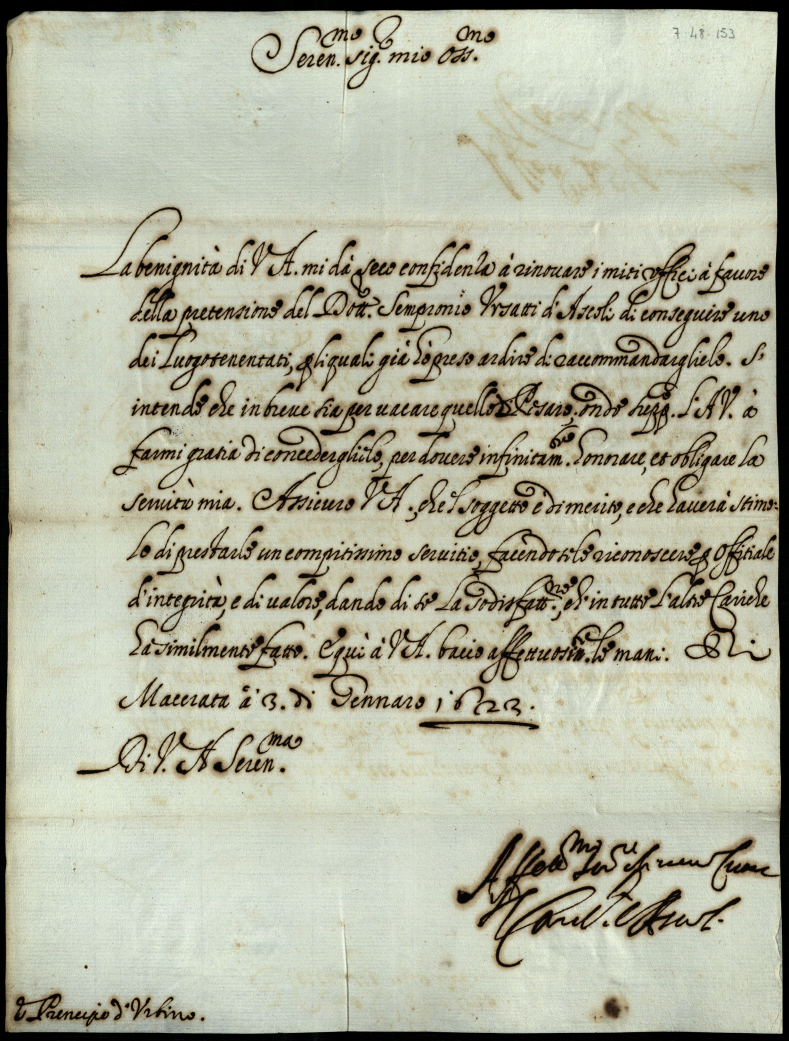 7-48-153
Seren.mo Sig.r mio Oss.mo
La benignità di V A. mi dà seco confidenza à rinovare i miei offici à favore
della pretensione del Dott.r Sempronio Ursatti d'Ascoli di conseguire uno
dei Luogotenentati, p li quali già hò preso ardire di raccommandargliele. S'
intende che in breve sia per vacare quello di Pesaro, onde supp.co l'A V. à
farmi gratia di concederglielo, per dovere infinitam.te honorare, et obligare la
servitù mia. Assicuro V A., che'l soggetto è di merito, e che haverà stimo-
lo di prestarle un compitissimo servitio, facendosele riconoscere p Offitiale
d'integrità, e di valore, dando di se la sodisfatt.ne, ch'in tutte l'altre Cariche
hà similmente fatto. E quì à V A. bacio affettuosam.te le mani. Di
Macerata à 3. di Gennaro 1623.
Di V. A Seren.ma
Aff.mo Ser.re
Il Card.l
S. Prencipe d'Urbino.